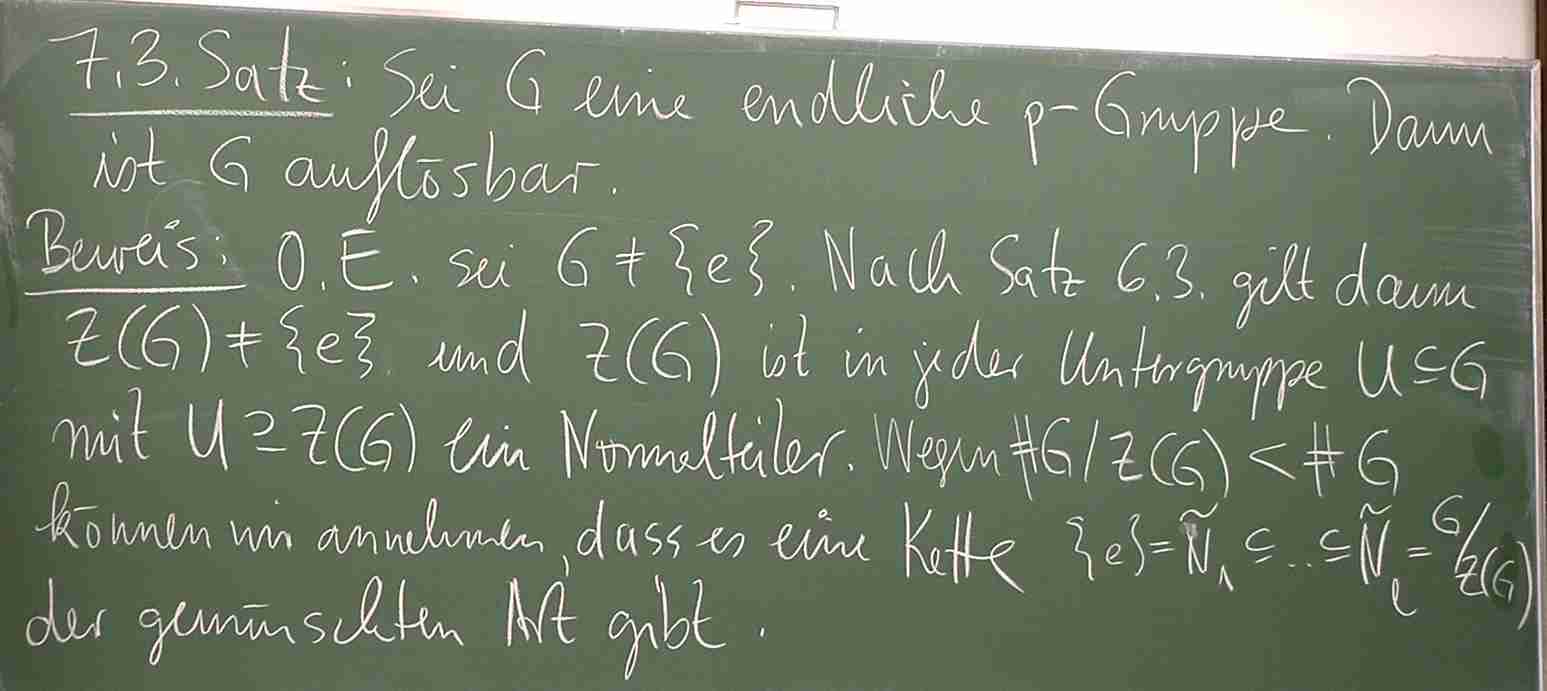 7.3. Satz: Sei G eine endliche p-Gruppe. Dann
ist G auflösbar.
Beweis: O.E. sei G ≠ {e}. Nach Satz 6.3. gilt dann
Z(G) ≠ {e} und Z(G) ist in jeder Untergruppe U ⊆ G
mit U ⊇ Z(G) ein Normalteiler. Wegen #G/Z(G) < #G
können wir annehmen, dass es eine Kette {e} = Ñ₁ ⊆ ... ⊆ Ñ_l = G/Z(G)
der gewünschten Art gibt.